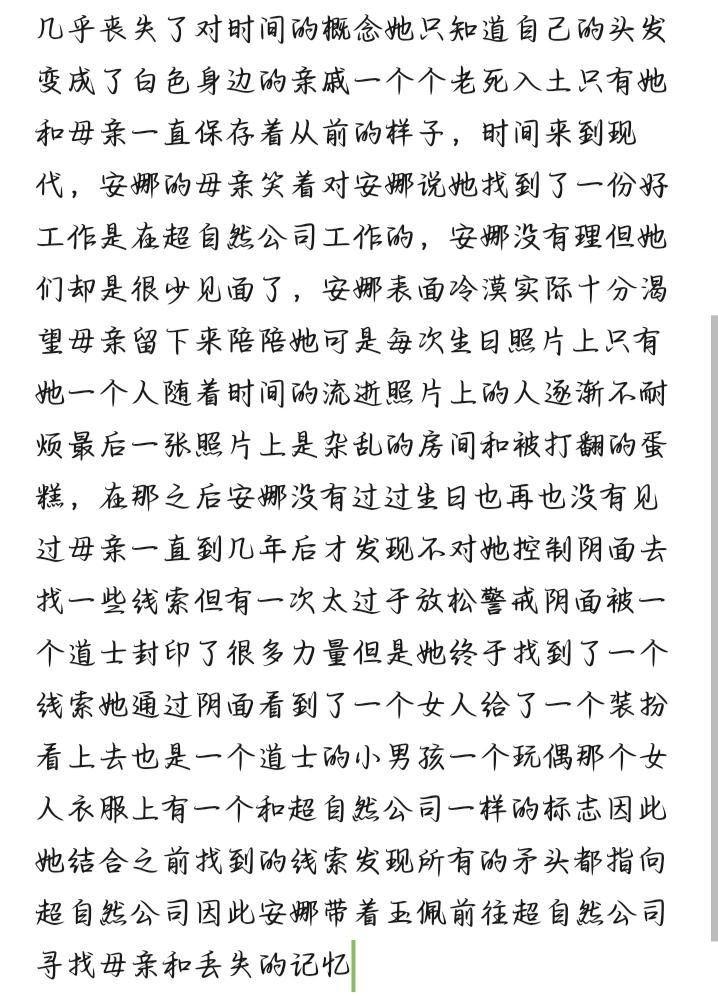 几乎丧失了对时间的概念她只知道自己的头发
变成了白色身边的亲戚一个个老死入土只有她
和母亲一直保存着从前的样子，时间来到现
代，安娜的母亲笑着对安娜说她找到了一份好
工作是在超自然公司工作的，安娜没有理但她
们却是很少见面了，安娜表面冷漠实际十分渴
望母亲留下来陪陪她可是每次生日照片上只有
她一个人随着时间的流逝照片上的人逐渐不耐
烦最后一张照片上是杂乱的房间和被打翻的蛋
糕，在那之后安娜没有过过生日也再也没有见
过母亲一直到几年后才发现不对她控制阴面去
找一些线索但有一次太过于放松警戒阴面被一
个道士封印了很多力量但是她终于找到了一个
线索她通过阴面看到了一个女人给了一个装扮
看上去也是一个道士的小男孩一个玩偶那个女
人衣服上有一个和超自然公司一样的标志因此
她结合之前找到的线索发现所有的矛头都指向
超自然公司因此安娜带着玉佩前往超自然公司
寻找母亲和丢失的记忆